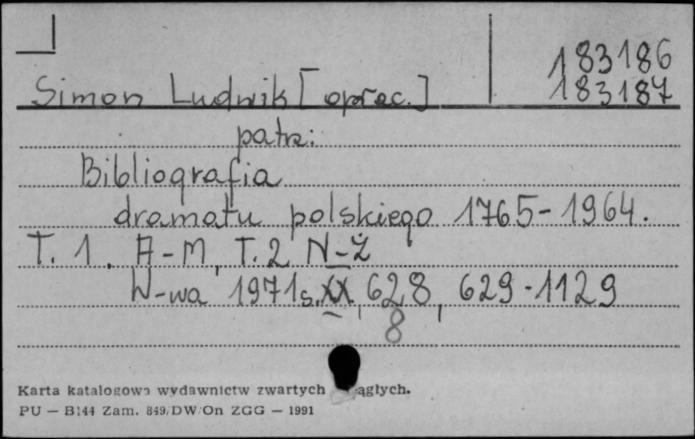 183186
Simon Ludwik [oprac.] 183187
patrz:
Bibliografia
dramatu polskiego 1765-1964.
T. 1. A-M, T. 2 N-Ż
W-wa 1971 s. XX, 628, 629-1129
8
Karta katalogowa wydawnictw zwartych ągłych.
PU — B144 Zam. 849/DW/On ZGG — 1991